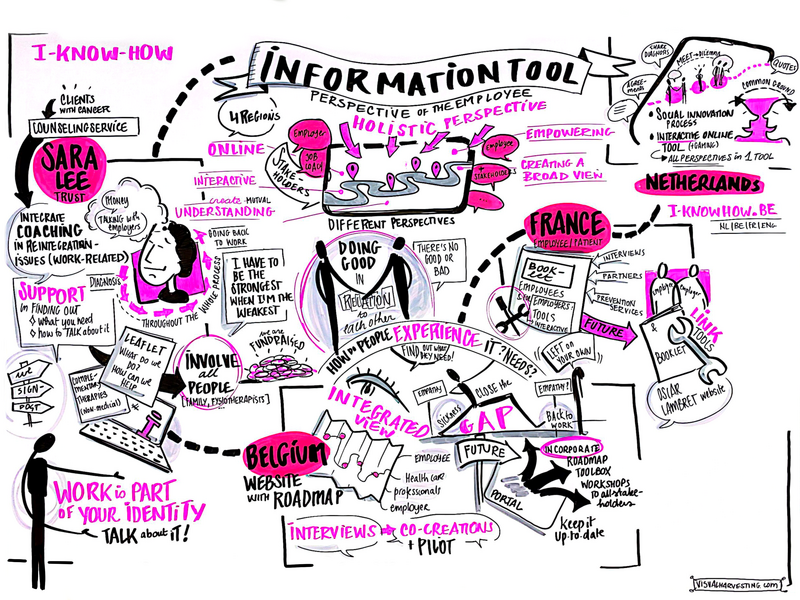 I-KNOW-HOW
INFORMATION TOOL
PERSPECTIVE OF THE EMPLOYEE
HOLISTIC PERSPECTIVE
CLIENTS
WITH CANCER
COUNSELING SERVICE
SARA
LEE
TRUST
INTEGRATE
COACHING
IN REINTEGRATION-
ISSUES (WORK-RELATED)
MONEY
TALKING WITH
EMPLOYERS
DIAGNOSIS
THROUGHOUT THE WHOLE PROCESS
GOING BACK
TO WORK
SUPPORT
IN FINDING OUT
WHAT YOU NEED
HOW TO TALK ABOUT IT
I HAVE TO
BE THE
STRONGEST
WHEN I'M THE
WEAKEST
LEAFLET
WHAT DO WE
DO?
HOW CAN WE
HELP
COMPLE-
MENTARY
THERAPIES
(NON-MEDICAL)
i
WE
SIGN-
POST
INVOLVE
all
PEOPLE
[FAMILY, FYSIOTHERAPISTS]
WE ARE
FUNDRAISED
WORK is PART
OF YOUR IDENTITY
TALK about iT!
4 REGIONS
ONLINE
INTERACTIVE
create MUTUAL
UNDERSTANDING
STAKE-
HOLDERS
Employer
JOB
COACH
Employee
+
STAKEHOLDERS
...
EMPOWERING
CREATING A
BROAD VIEW
DIFFERENT PERSPECTIVES
DOING
GOOD
IN
RELATION
to
each other
THERE'S NO
GOOD OR
BAD
HOW DO PEOPLE EXPERIENCE IT? NEEDS?
FIND OUT WHAT
THEY NEED!
INTEGRATED
VIEW
EMPATHY
CLOSE the
GAP
EMPATHY?
Sickness
Back to
work
LEFT ON
YOUR OWN
BELGIUM
WEBSITE
WITH ROADMAP
EMPLOYEE
Health care
professionals
employer
INTERVIEWS
CO-CREATIONS
+ PILOT
FUTURE
PORTAL
INCORPORATE
ROADMAP
TOOLBOX
WORKSHOPS
TO all STAKE-
holders
Keep it
up-to-date
FRANCE
EMPLOYEE/PATIENT
BOOK-
LEE
EMPLOYEES
EMPLOYERS
TOOLS
INTERACTIVE
INTERVIEWS
PARTNERS
PREVENTION
SERVICES
FUTURE
employee
employer
LINK
TOOLS
&
BOOKLET
OSCAR
LAMBRET website
SHARE
DIAGNOSIS
AGREE-
MENTS
MEET
DILEMMA
QUOTES
COMMON GROUND
SOCIAL INNOVATION
PROCESS
INTERACTIVE ONLINE
TOOL (+GAMING)
ALL PERSPECTIVES IN 1 TOOL
NETHERLANDS
I-KNOWHOW.BE
NL|BE|FR|ENG
VISUALHARVESTING.COM